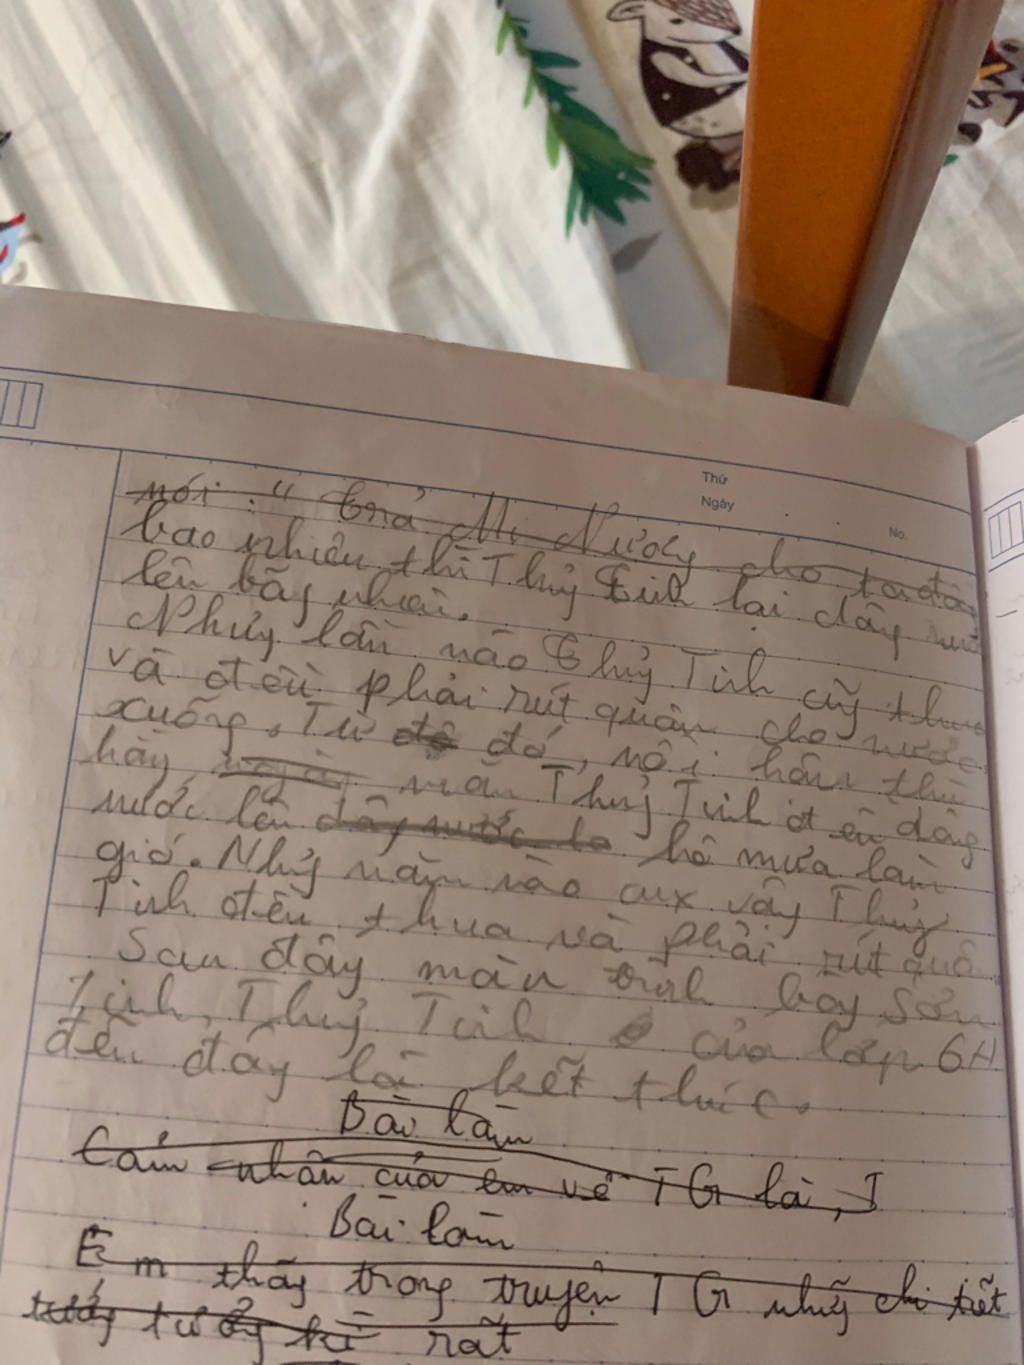 Thứ
Ngày
No.
nói: " trả Mị Nương cho ta đây
bao nhiêu thì Thủy Tinh lại dâng nước
lên bấy nhiêu.
Nhưng lần nào Thủy Tinh cũg thua
và đều phải rút quân cho nước
xuống. Từ đó, mỗi năm thù
hằn năm Thủy Tinh đều dâng
nước lên dâng nước lê hô mưa làm
gió. Nhưg năm nào cux vậy Thủy
Tinh đều thua và phải rút quâ
Sau đây màn trình bày Sơn
Tinh, Thủy Tinh của lớp 6A
đến đây là kết thúc.
Bài làm
Cảm nhân của em về TG là, T
Bài làm
Em thấy trong truyện TG nhữg chi tiết
tưởng tượng kì rất